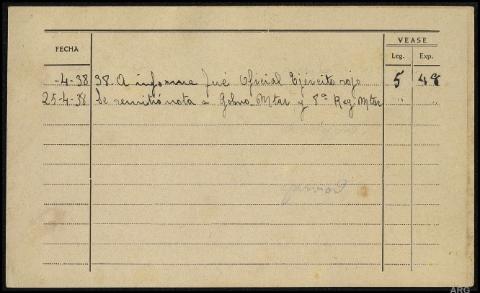 FECHA
VEASE
Leg. Exp.
-4-38 38 A informe fué Oficial Ejército rojo 5 48
25-4-38 Se remitió nota a Gobno. Mtar y 8ª Reg. Mtar " "
ARG